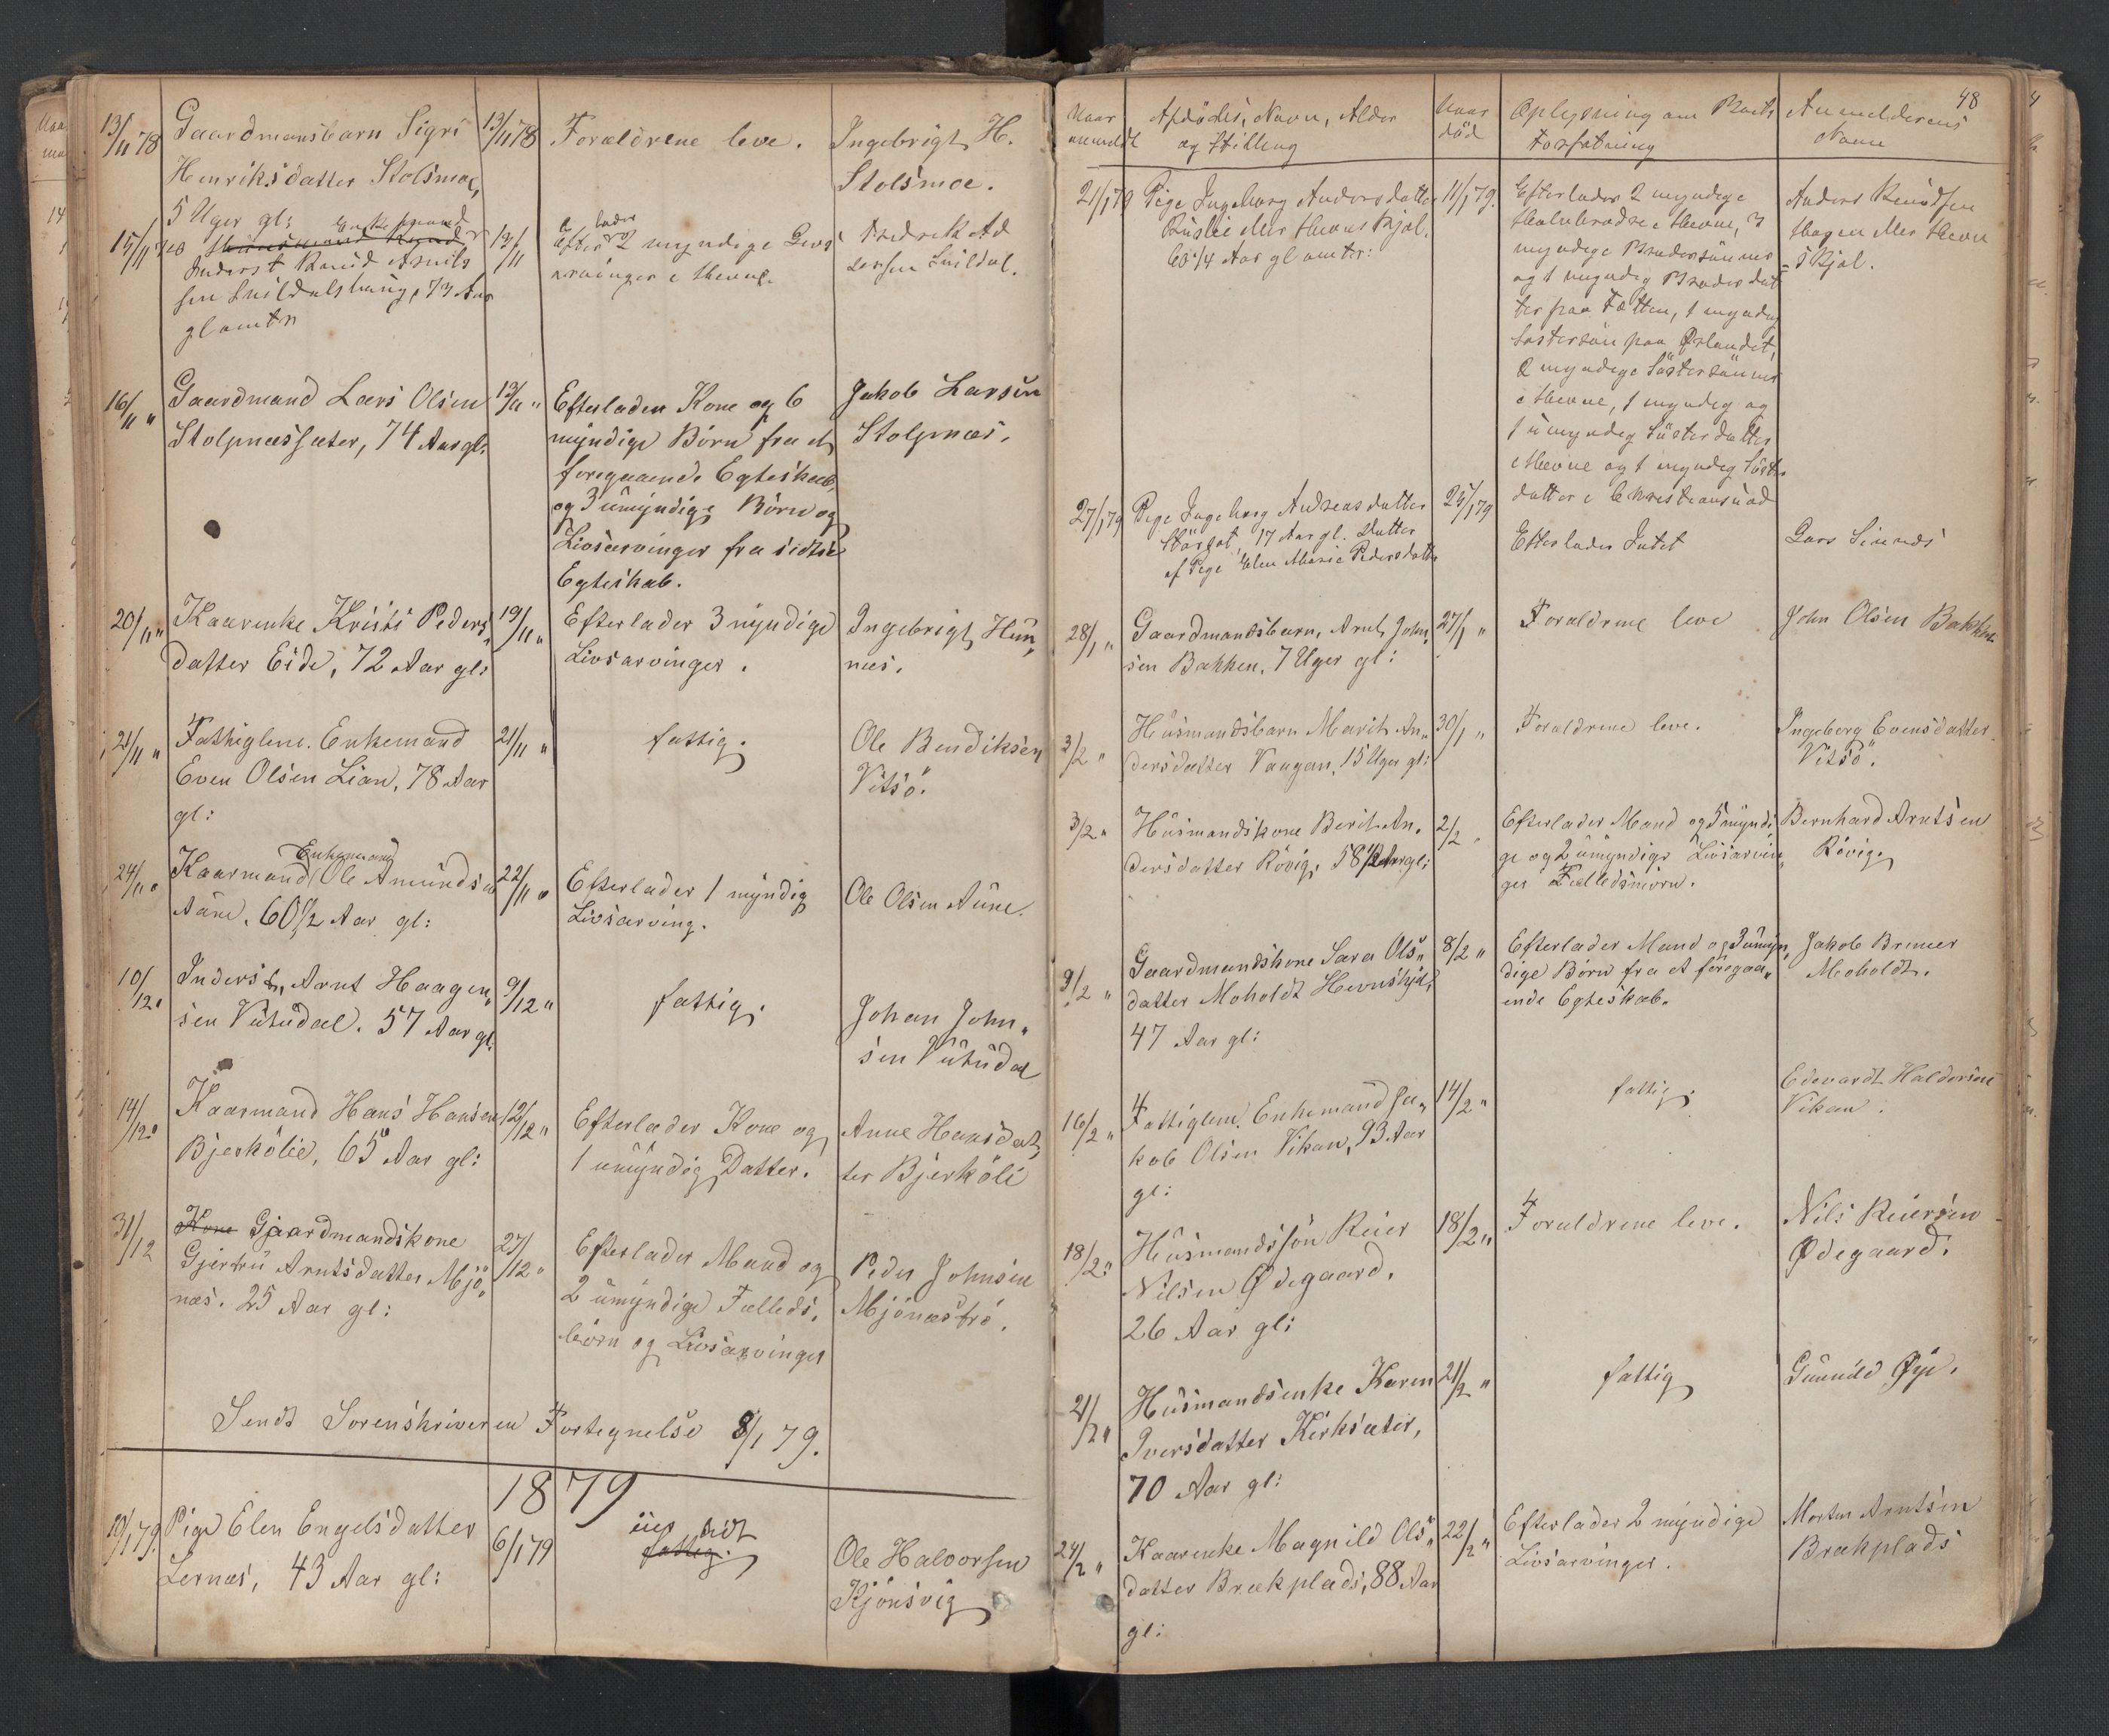 13/11 78 Gaardmansbarn Sigri 13/11 78 Foraldrene leve. Ingebrigt H.
Henriksdatter Stolsmoe, Stolsmoe.
5 Uger gl:
Enkemand
15/11 78 Inderst Knud Arnts 13/11 Efterlader 2 myndige Livs Fredrik
sen Snildalshaug, 73 Aar arvinger i Hevne. Snildal.
gl omtr
16/11 " Gaardmand Lars Olsen 13/11 " Efterlader Kone og 6 Jakob Larsen
Stolpnessæter, 74 Aar gl. myndige Börn fra et Stolpnæs.
foregaaende Egteskab,
og 3 umyndige Börn og
Livsarvinger fra sidste
Egteskab.
20/11 " Kaarenke Kristi Peders„ 19/11 " Efterlader 3 myndige Ingebrigt Hun„
datter Eide, 72 Aar gl: Livsarvinger. næs.
21/11 " Fattiglem. Enkemand 21/11 " fattig. Ole Bendiksen
Even Olsen Lian, 78 Aar Vitsö.
gl:
Enkemand
24/11 " Kaarmand Ole Amundsen 22/11 " Efterlader 1 myndig Ole Olsen Aune.
Aune. 60 1/2 Aar gl: Livsarving.
10/12 " Inderst, Arnt Haagen„ 9/12 " fattig. Johan John„
sen Vutudal. 57 Aar gl. sen Vutudal
14/12 " Kaarmand Hans Hansen 12/12 " Efterlader Kone og Anne Hansdat„
Bjerkölie, 65 Aar gl: 1 umyndig Datter. ter Bjerköli
31/12 Kone Gaardmandskone 27/12 " Efterlader Mand og Peder Johnsen
Gjertru Arntsdatter Mjö„ 2 umyndige Fælleds„ Mjönæströ.
næs. 25 Aar gl: börn og Livsarvinger
Sendt Sorenskriveren Fortegnelse 8/1 79.
1879
10/1 79. Pige Elen Engelsdatter 6/1 79 fattig. Ole Halvorsen
Lernæs, 43 Aar gl: Kjönsvig
48
Naar anmeldt Afdödes, Navn, Alder Naar död Oplysning om Boets Anmelderens
og Stilling Forfatning Navn
21/1 79 Pige Ingeborg Andersdatter 11/1 79. Efterlader 2 myndige Anders Knudsen
Halvbrødre i Hevne, 3 Hagen Hevn
63 1/4 Aar gl omtr: myndige Brodersönner skjel.
og 1 myndig Broderdat
ter paa Tætten, 1 myndig
Söstersön paa Ørlandet,
2 myndige Söstersönner
i Hevne, 1 myndig og
1 umyndig Sösterdatter
i Hevne og 1 myndig Söster
datter i Christiansund
27/1 79 Pige Ingeborg Andreasdatter 25/1 79 Efterlader Intet Lars
17 Aar gl. Datter
af Pige Elen Marie Pedersdatter
28/1 " Gaardmandsbarn, Arnt John„ 27/1 " Foraldrene leve John Olsen Bakken
sen Bakken, 7 Uger gl:
3/2 " Husmandsbarn Marit An„ 30/1 " Foraldrene leve. Ingeborg Evensdatter
dersdatter Vaagan, 15 Uger gl: Vitsö.
3/2 " Husmandskone Berit An„ 2/2 " Efterlader Mand og 5 myndi„ Bernhard Arntsen
dersdatter Rövig, 58 1/2 Aar gl: ge og 2 umyndige Livsarvin„ Rövig.
ger
9/2 " Gaardmandskone Sara Ols„ 8/2 " Efterlader Mand og 3 umyn„ Jakob Bremer
datter Moholdt Hevnskjel, dige Börn fra et foregaa„ Moholdt.
47 Aar gl: ende Egteskab.
16/2 " Fattiglem. Enkemand Ja„ 14/2 " fattig. Edevardt Haldorsen
kob Olsen Vikan, 93 Aar Vikan.
gl:
18/2 " Husmandssön Reier 18/2 " Foraldrene leve. Nils Reiersen
Nilsen Ødegaard, Ødegaard.
26 Aar gl:
21/2 " Husmandsenke Karen 21/2 " fattig Gunnild Øye.
Iversdatter Kirksæter,
70 Aar gl:
24/2 " Kaarenke Magnild Ols„ 22/2 " Efterlader 2 myndige Morten Arntsen
datter Brækplads, 88 Aar Livsarvinger. Brækplads
gl: